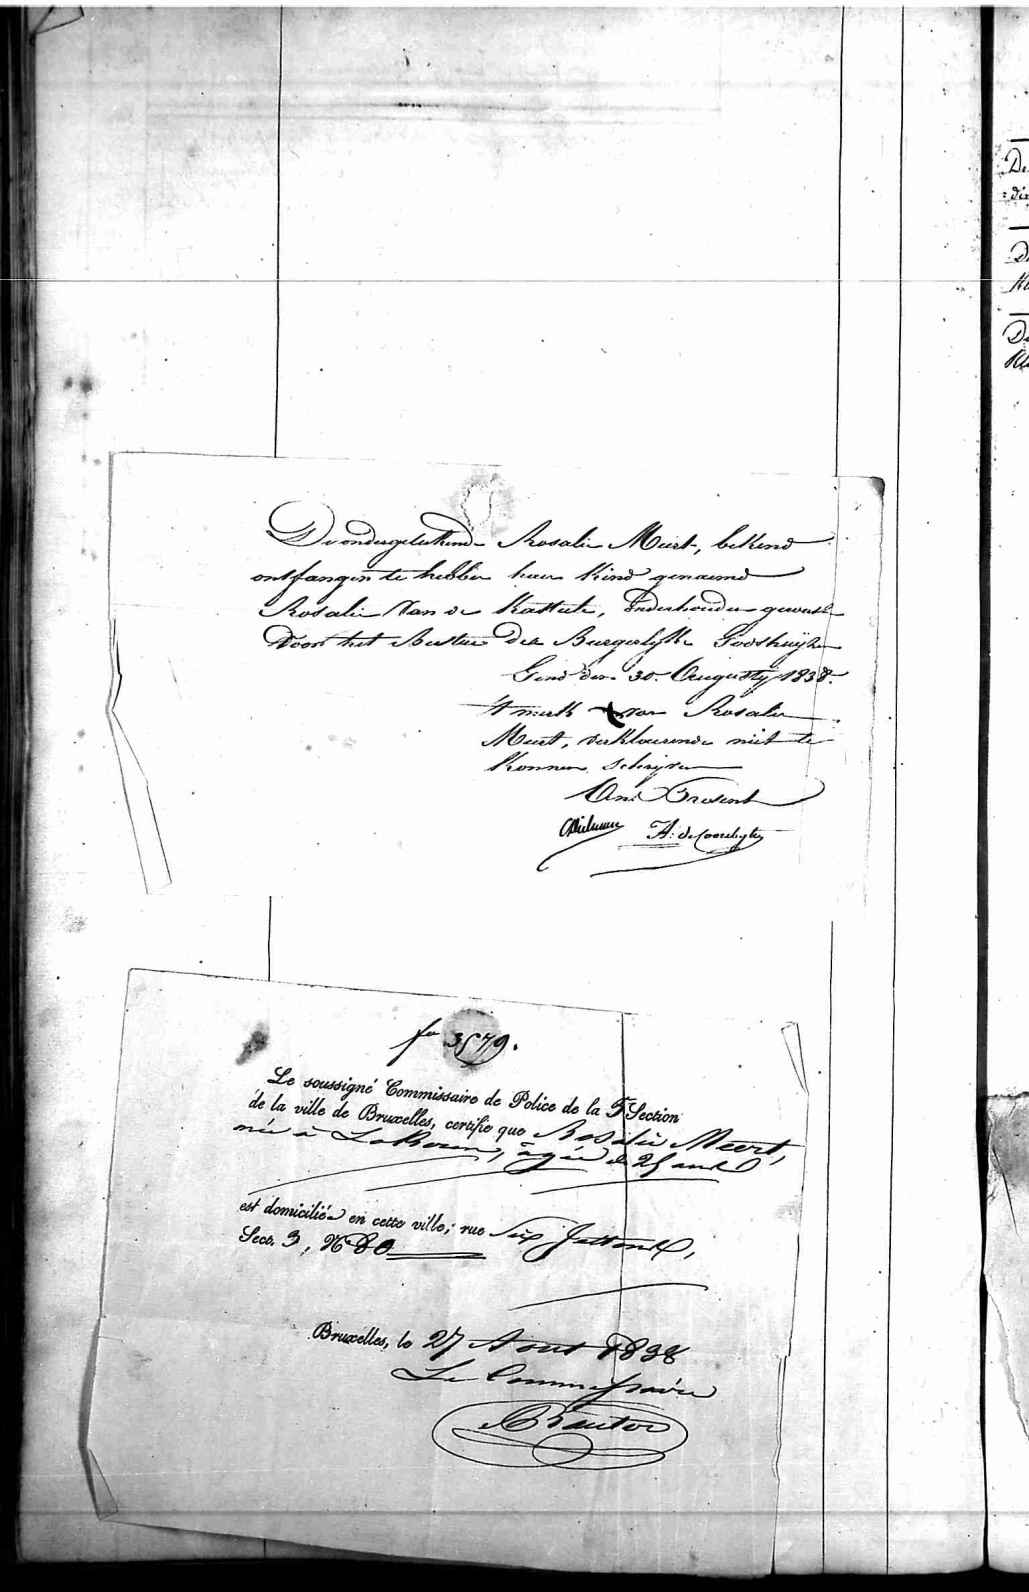 De ondergeteekende Rosalie Meert, bekend
ontfangen te hebben haer Kind genaemd
Rosalie Van de Kasteele, onderhouden geweest
Door het Bestuer der Burgerlyke Godshuyzen
Gend den 30. Augusty 1838.
't merk van Rosalie
Meert, verklaerende niet te
konnen schryven
Ons Present
fo 3579.
Le soussigné Commissaire de Police de la 5 Section
de la ville de Bruxelles, certifie que Rosalie Meert,
née à Lokeren, âgée de 25 ans
est domiciliée en cette ville; rue Six Jettons,
Sect. 3, No 80
Bruxelles, le 27 Aout 1838
Le Commissaire
De
Du
De